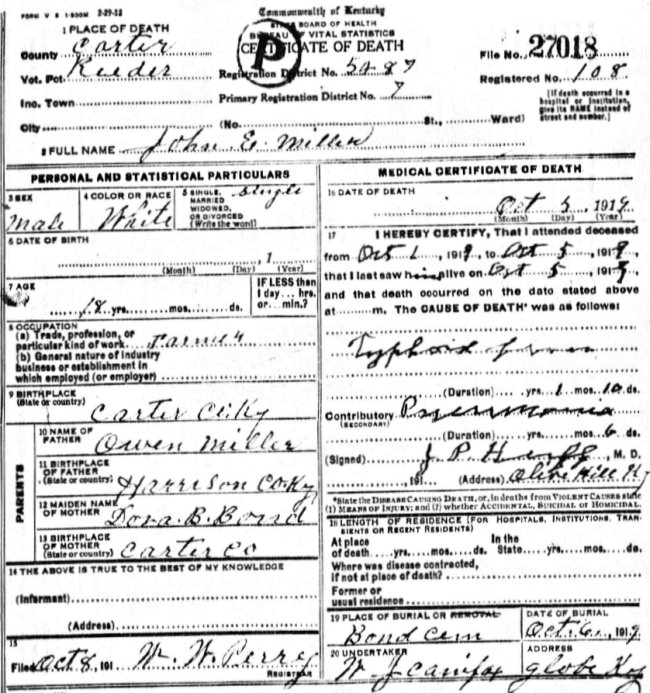 FORM V S 1-500M 2-29-12
Commonwealth of Kentucky
STATE BOARD OF HEALTH
BUREAU OF VITAL STATISTICS
CERTIFICATE OF DEATH
P
1 PLACE OF DEATH
County Carter
Vot. Pct. Reeder
Inc. Town
City
Registration District No. 5487
Primary Registration District No. 7
(No. St., Ward)
File No. 27018
Registered No. 108
(If death occurred in a
hospital or institution,
give its NAME instead of
street and number.)
2 FULL NAME John E. Miller
PERSONAL AND STATISTICAL PARTICULARS
3 SEX
Male
4 COLOR OR RACE
White
5 SINGLE,
MARRIED
WIDOWED,
OR DIVORCED
(Write the word)
Single
6 DATE OF BIRTH
, 1
(Month) (Day) (Year)
7 AGE
18 yrs. mos. ds.
IF LESS than
1 day... hrs.
or... min.?
8 OCCUPATION
(a) Trade, profession, or
particular kind of work Farmer
(b) General nature of industry
business or establishment in
which employed (or employer)
9 BIRTHPLACE
(State or country)
Carter Co Ky
PARENTS
10 NAME OF
FATHER
Owen Miller
11 BIRTHPLACE
OF FATHER
(State or country)
Harrison Co Ky
12 MAIDEN NAME
OF MOTHER
Dora. B. Bond
13 BIRTHPLACE
OF MOTHER
(State or country)
Carter Co
14 THE ABOVE IS TRUE TO THE BEST OF MY KNOWLEDGE
(Informant)
(Address)
15
Filed Oct 8, 191 W. W. Perry
REGISTRAR
MEDICAL CERTIFICATE OF DEATH
16 DATE OF DEATH
Oct 5 1919
(Month) (Day) (Year)
17 I HEREBY CERTIFY, That I attended deceased
from Oct 1, 1919, to Oct 5, 1919,
that I last saw him alive on Oct 5, 1919,
and that death occurred on the date stated above
at m. The CAUSE OF DEATH* was as follows:
Typhoid fever
(Duration) yrs. 1 mos. 10 ds.
Contributory Pneumonia
(SECONDARY)
(Duration) yrs. mos. 6 ds.
(Signed) J. P. Huff, M. D.
, 191 (Address) Olive Hill Ky
*State the DISEASE CAUSING DEATH, or, in deaths from VIOLENT CAUSES state
(1) MEANS OF INJURY; and (2) whether ACCIDENTAL, SUICIDAL or HOMICIDAL.
18 LENGTH OF RESIDENCE (FOR HOSPITALS, INSTITUTIONS, TRAN-
SIENTS OR RECENT RESIDENTS)
At place In the
of death yrs. mos. ds. State yrs. mos. ds.
Where was disease contracted,
if not at place of death?
Former or
usual residence
19 PLACE OF BURIAL OR REMOVAL
Bond Cem
DATE OF BURIAL
Oct. 6, 1919
20 UNDERTAKER
W J Canifax
ADDRESS
Globe Ky